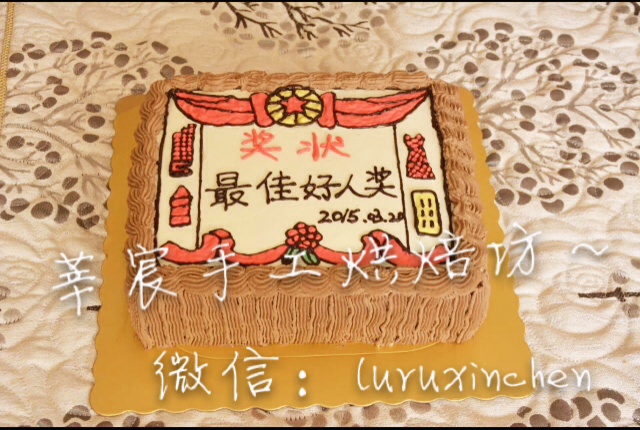 奖状
最佳好人奖
2015.03.20
莘宸手工烘焙坊~
微信：luruxinchen